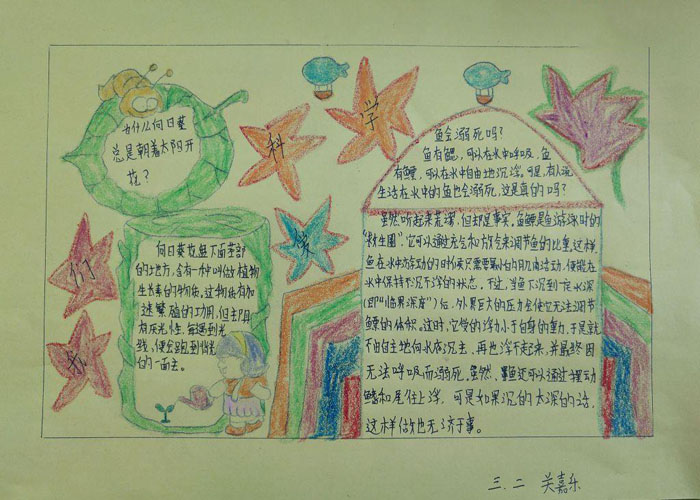 我
们
爱
科
学
为什么向日葵
总是朝着太阳开
花?
向日葵花盘下面茎部
的地方,含有一种叫做植物
生长素的物质,这物质有加
速繁殖的功用,但却具
有反光性,每遇到光
线,便会跑到背光
的一面去。
鱼会溺死吗?
鱼有鳃,可以在水中呼吸,鱼
有鳔,可以在水中自由地沉浮,可是,有人说
生活在水中的鱼也会溺死,这是真的吗?
虽然听起来荒谬,但却是事实。鱼鳔是鱼游泳时的
“救生圈”,它可以通过充气和放气来调节鱼的比重,这样
鱼在水中游动的时候只需要最小的肌肉活动,便能在
水中保持不沉不浮的状态。不过,当鱼下沉到一定水深
(即“临界深度”)后,外界巨大的压力会使它无法调节
鳔的体积。这时,它受的浮力小于自身的重力,于是就
不由自主地向水底沉去,再也浮不起来,并最终因
无法呼吸而溺死。虽然,鱼还可以通过摆动
鳍和尾往上浮,可是如果沉的太深的话,
这样做也无济于事。
三.二 关嘉乐